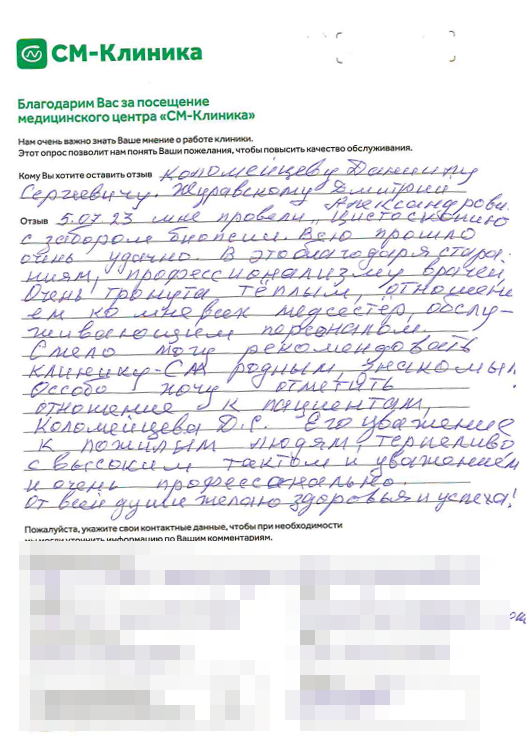 СМ-Клиника
Благодарим Вас за посещение
медицинского центра «СМ-Клиника»
Нам очень важно знать Ваше мнение о работе клиники.
Этот опрос позволит нам понять Ваши пожелания, чтобы повысить качество обслуживания.
Кому Вы хотите оставить отзыв Коломейцеву Даниилу
Сергеевичу. Журавскому Дмитрий
Александрови.
Отзыв 5.07.23 мне провели „Цистоскопию
с забором биопсии. Всю прошло
очень удачно. В это благодаря стара-
ниям, профессионализму врачей
Очень тронута тёплым, отношени-
ем ко мне всех медсестёр, обслу-
живающим персоналом.
Смело могу рекомендовать
клинику-СМ родным, знакомым.
Оссобо хочу отметить
отношение к пациентам,
Коломейцева Д.С. Его уважение
к пожилым людям, терпеливо
с высоким тактом и уважением
и очень профессионально.
От всей души желаю здоровья и успеха!
Пожалуйста, укажите свои контактные данные, чтобы при необходимости
мы могли уточнить информацию по Вашим комментариям.